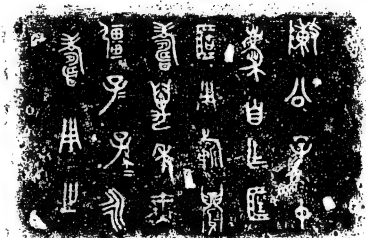 敶公子中
慶自乍匡
簠用祈眉
壽萬年無
疆子子孫永
壽用之